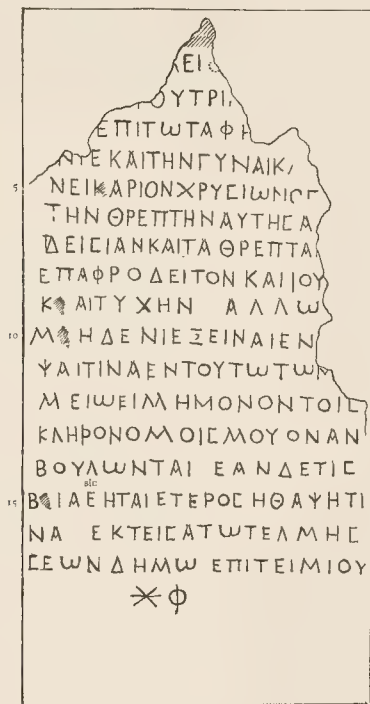 ΕΙ
ΟΥΤΡΙ
ΕΠΙΤωΤΑΦΗ
ΤΕΚΑΙΤΗΝΓΥΝΑΙΚ
5 ΝΕΙΚΑΡΙΟΝΧΡΥCΙωΝ
ΤΗΝΘΡΕΠΤΗΝΑΥΤΗCΑ
ΔΕΙCΙΑΝΚΑΙΤΑΘΡΕΠΤΑ
ΕΠΑΦΡΟΔΕΙΤΟΝΚΑΙΙΟΥ
Κ ΑΙΤΥΧΗΝ ΑΛΛω
10 Μ ΗΔΕΝΙΕΞΕΙΝΑΙΕΝ
ΨΑΙΤΙΝΑΕΝΤΟΥΤωΤωΝ
ΜΕΙωΕΙΜΗΜΟΝΟΝΤΟΙC
ΚΛΗΡΟΝΟΜΟΙCΜΟΥΟΝΑΝ
ΒΟΥΛωΝΤΑΙ ΕΑΝΔΕΤΙC
sic
15 Β ΙΑΕΗΤΑΙΕΤΕΡΟCΗΘΑΨΗΤΙ
ΝΑ ΕΚΤΕΙCΑΤωΤΕΛΜΗC
CΕωΝΔΗΜω ΕΠΙΤΕΙΜΙΟΥ
𐆖 Φ